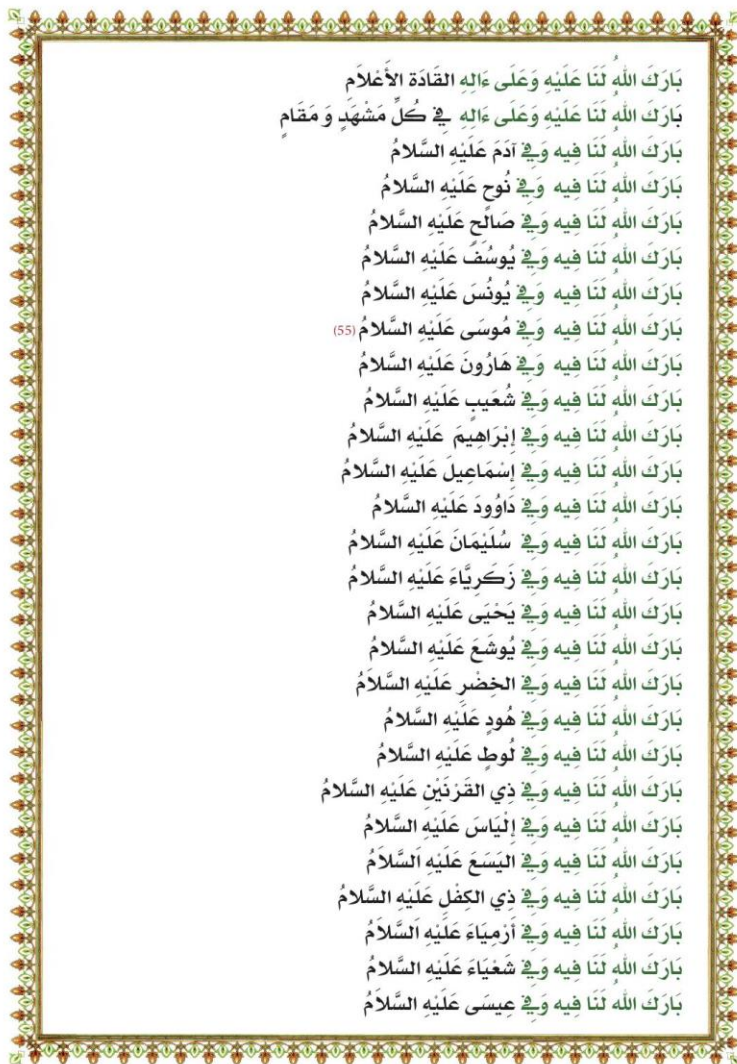 بَارَكَ اللهُ لَنَا عَلَيْهِ وَعَلَى ءَالِهِ القَادَة الأَعْلاَم
بَارَكَ اللهُ لَنَا عَلَيْهِ وَعَلَى ءَالِهِ فِي كُلِّ مَشْهَدٍ وَ مَقَامٍ
بَارَكَ اللهُ لَنَا فِيه وَفِي آدَمَ عَلَيْهِ السَّلامُ
بَارَكَ اللهُ لَنَا فِيه وَفِي نُوحٍ عَلَيْهِ السَّلامُ
بَارَكَ اللهُ لَنَا فِيه وَفِي صَالِحٍ عَلَيْهِ السَّلامُ
بَارَكَ اللهُ لَنَا فِيه وَفِي يُوسُفَ عَلَيْهِ السَّلامُ
بَارَكَ اللهُ لَنَا فِيه وَفِي يُونُسَ عَلَيْهِ السَّلامُ
بَارَكَ اللهُ لَنَا فِيه وَفِي مُوسَى عَلَيْهِ السَّلامُ (55)
بَارَكَ اللهُ لَنَا فِيه وَفِي هَارُونَ عَلَيْهِ السَّلامُ
بَارَكَ اللهُ لَنَا فِيه وَفِي شُعَيبٍ عَلَيْهِ السَّلامُ
بَارَكَ اللهُ لَنَا فِيه وَفِي إِبْرَاهِيمَ عَلَيْهِ السَّلامُ
بَارَكَ اللهُ لَنَا فِيه وَفِي إِسْمَاعِيلَ عَلَيْهِ السَّلامُ
بَارَكَ اللهُ لَنَا فِيه وَفِي دَاوُودَ عَلَيْهِ السَّلامُ
بَارَكَ اللهُ لَنَا فِيه وَفِي سُلَيْمَانَ عَلَيْهِ السَّلامُ
بَارَكَ اللهُ لَنَا فِيه وَفِي زَكَرِيَّاءَ عَلَيْهِ السَّلامُ
بَارَكَ اللهُ لَنَا فِيه وَفِي يَحْيَى عَلَيْهِ السَّلامُ
بَارَكَ اللهُ لَنَا فِيه وَفِي يُوشَعَ عَلَيْهِ السَّلامُ
بَارَكَ اللهُ لَنَا فِيه وَفِي الخِضْرِ عَلَيْهِ السَّلاَمُ
بَارَكَ اللهُ لَنَا فِيه وَفِي هُودٍ عَلَيْهِ السَّلامُ
بَارَكَ اللهُ لَنَا فِيه وَفِي لُوطٍ عَلَيْهِ السَّلامُ
بَارَكَ اللهُ لَنَا فِيه وَفِي ذِي القَرْنَيْنِ عَلَيْهِ السَّلامُ
بَارَكَ اللهُ لَنَا فِيه وَفِي إِلْيَاسَ عَلَيْهِ السَّلامُ
بَارَكَ اللهُ لَنَا فِيه وَفِي اليَسَعَ عَلَيْهِ السَّلاَمُ
بَارَكَ اللهُ لَنَا فِيه وَفِي ذِي الكِفْلِ عَلَيْهِ السَّلامُ
بَارَكَ اللهُ لَنَا فِيه وَفِي أَرْمِيَاءَ عَلَيْهِ السَّلاَمُ
بَارَكَ اللهُ لَنَا فِيه وَفِي شَعْيَاءَ عَلَيْهِ السَّلامُ
بَارَكَ اللهُ لَنَا فِيه وَفِي عِيسَى عَلَيْهِ السَّلاَمُ